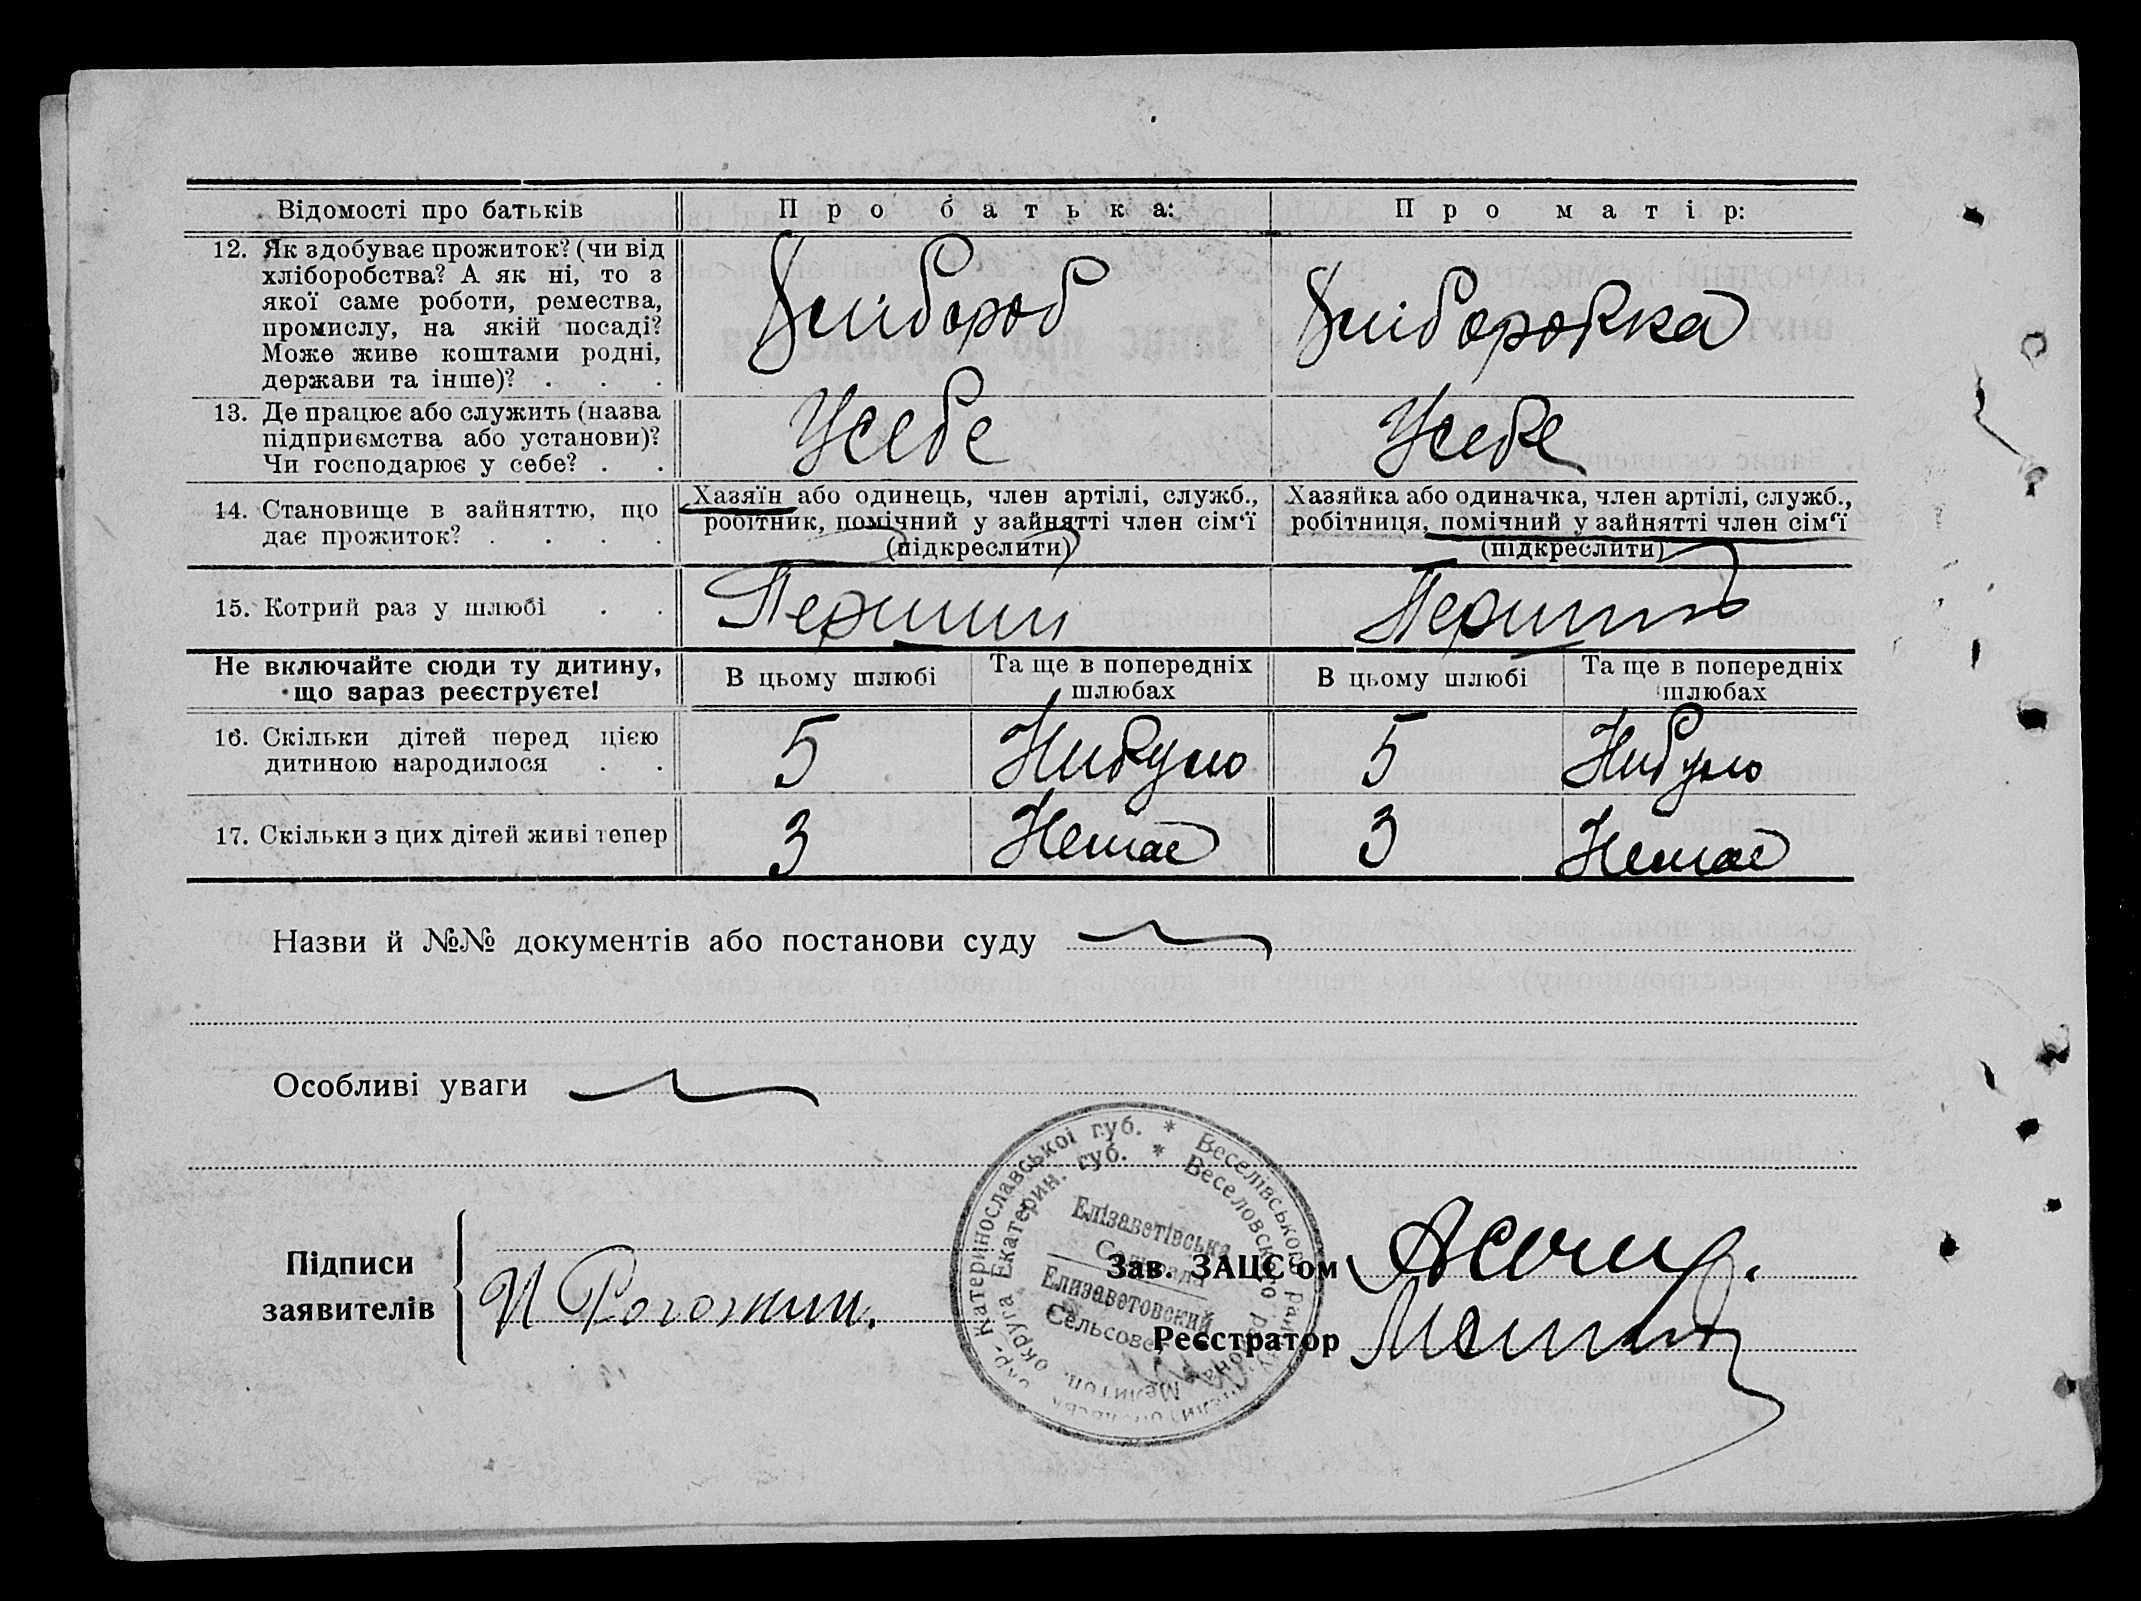 Відомості про батьків
Про батька:
Про матір:
12. Як здобуває прожиток? (чи від
хліборобства? А як ні, то з
якої саме роботи, ремества,
промислу, на якій посаді?
Може живе коштами родні,
держави та інше)? . . .
Хлібороб
Хліборобка
13. Де працює або служить (назва
підприємства або установи)?
Чи господарює у себе? . .
Усебе
Усебе
14. Становище в зайняттю, що
дає прожиток? . . . .
Хазяїн або одинець, член артілі, служб.,
робітник, помічний у зайнятті член сім'ї
(підкреслити)
Хазяйка або одиначка, член артілі, служб.,
робітниця, помічний у зайнятті член сім'ї
(підкреслити)
15. Котрий раз у шлюбі . .
Перший
Перший
Не включайте сюди ту дитину,
що зараз реєструєте!
В цьому шлюбі
Та ще в попередніх
шлюбах
В цьому шлюбі
Та ще в попередніх
шлюбах
16. Скільки дітей перед цією
дитиною народилося . .
5
Нибуло
5
Нибуло
17. Скільки з цих дітей живі тепер
3
Немає
3
Немає
Назви й №№ документів або постанови суду
Особливі уваги
Підписи
заявителів
И Рогожин.
Катеринославської губ. * Веселівського району
Екатерин. губ. * Веселовского района Мелитоп. округа
Елізаветівська
Сельрада
Елизаветовский
Сельсовет
Зав. ЗАЦС'ом
Реєстратор